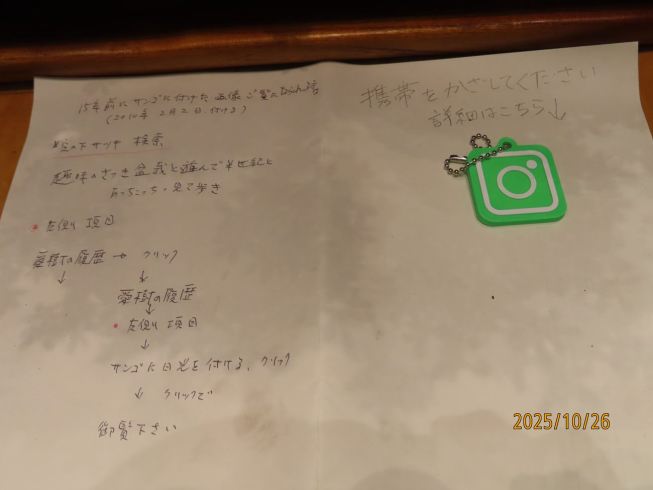 15年前にサンゴに付けた画像ご覧になられる
(2010年 2月2日.付ける)
検索
趣味のさつき盆栽と遊んで半世紀と
あっちこっち.見て歩き
* 左側り 項目
愛樹の履歴 → クリック
↓ ↓
愛樹の履歴
↓
* 左側り 項目
↓
サンゴに日光を付ける、クリック
↓ クリックで
御覧下さい
携帯をかざしてください
詳細はこちら↓
2025/10/26